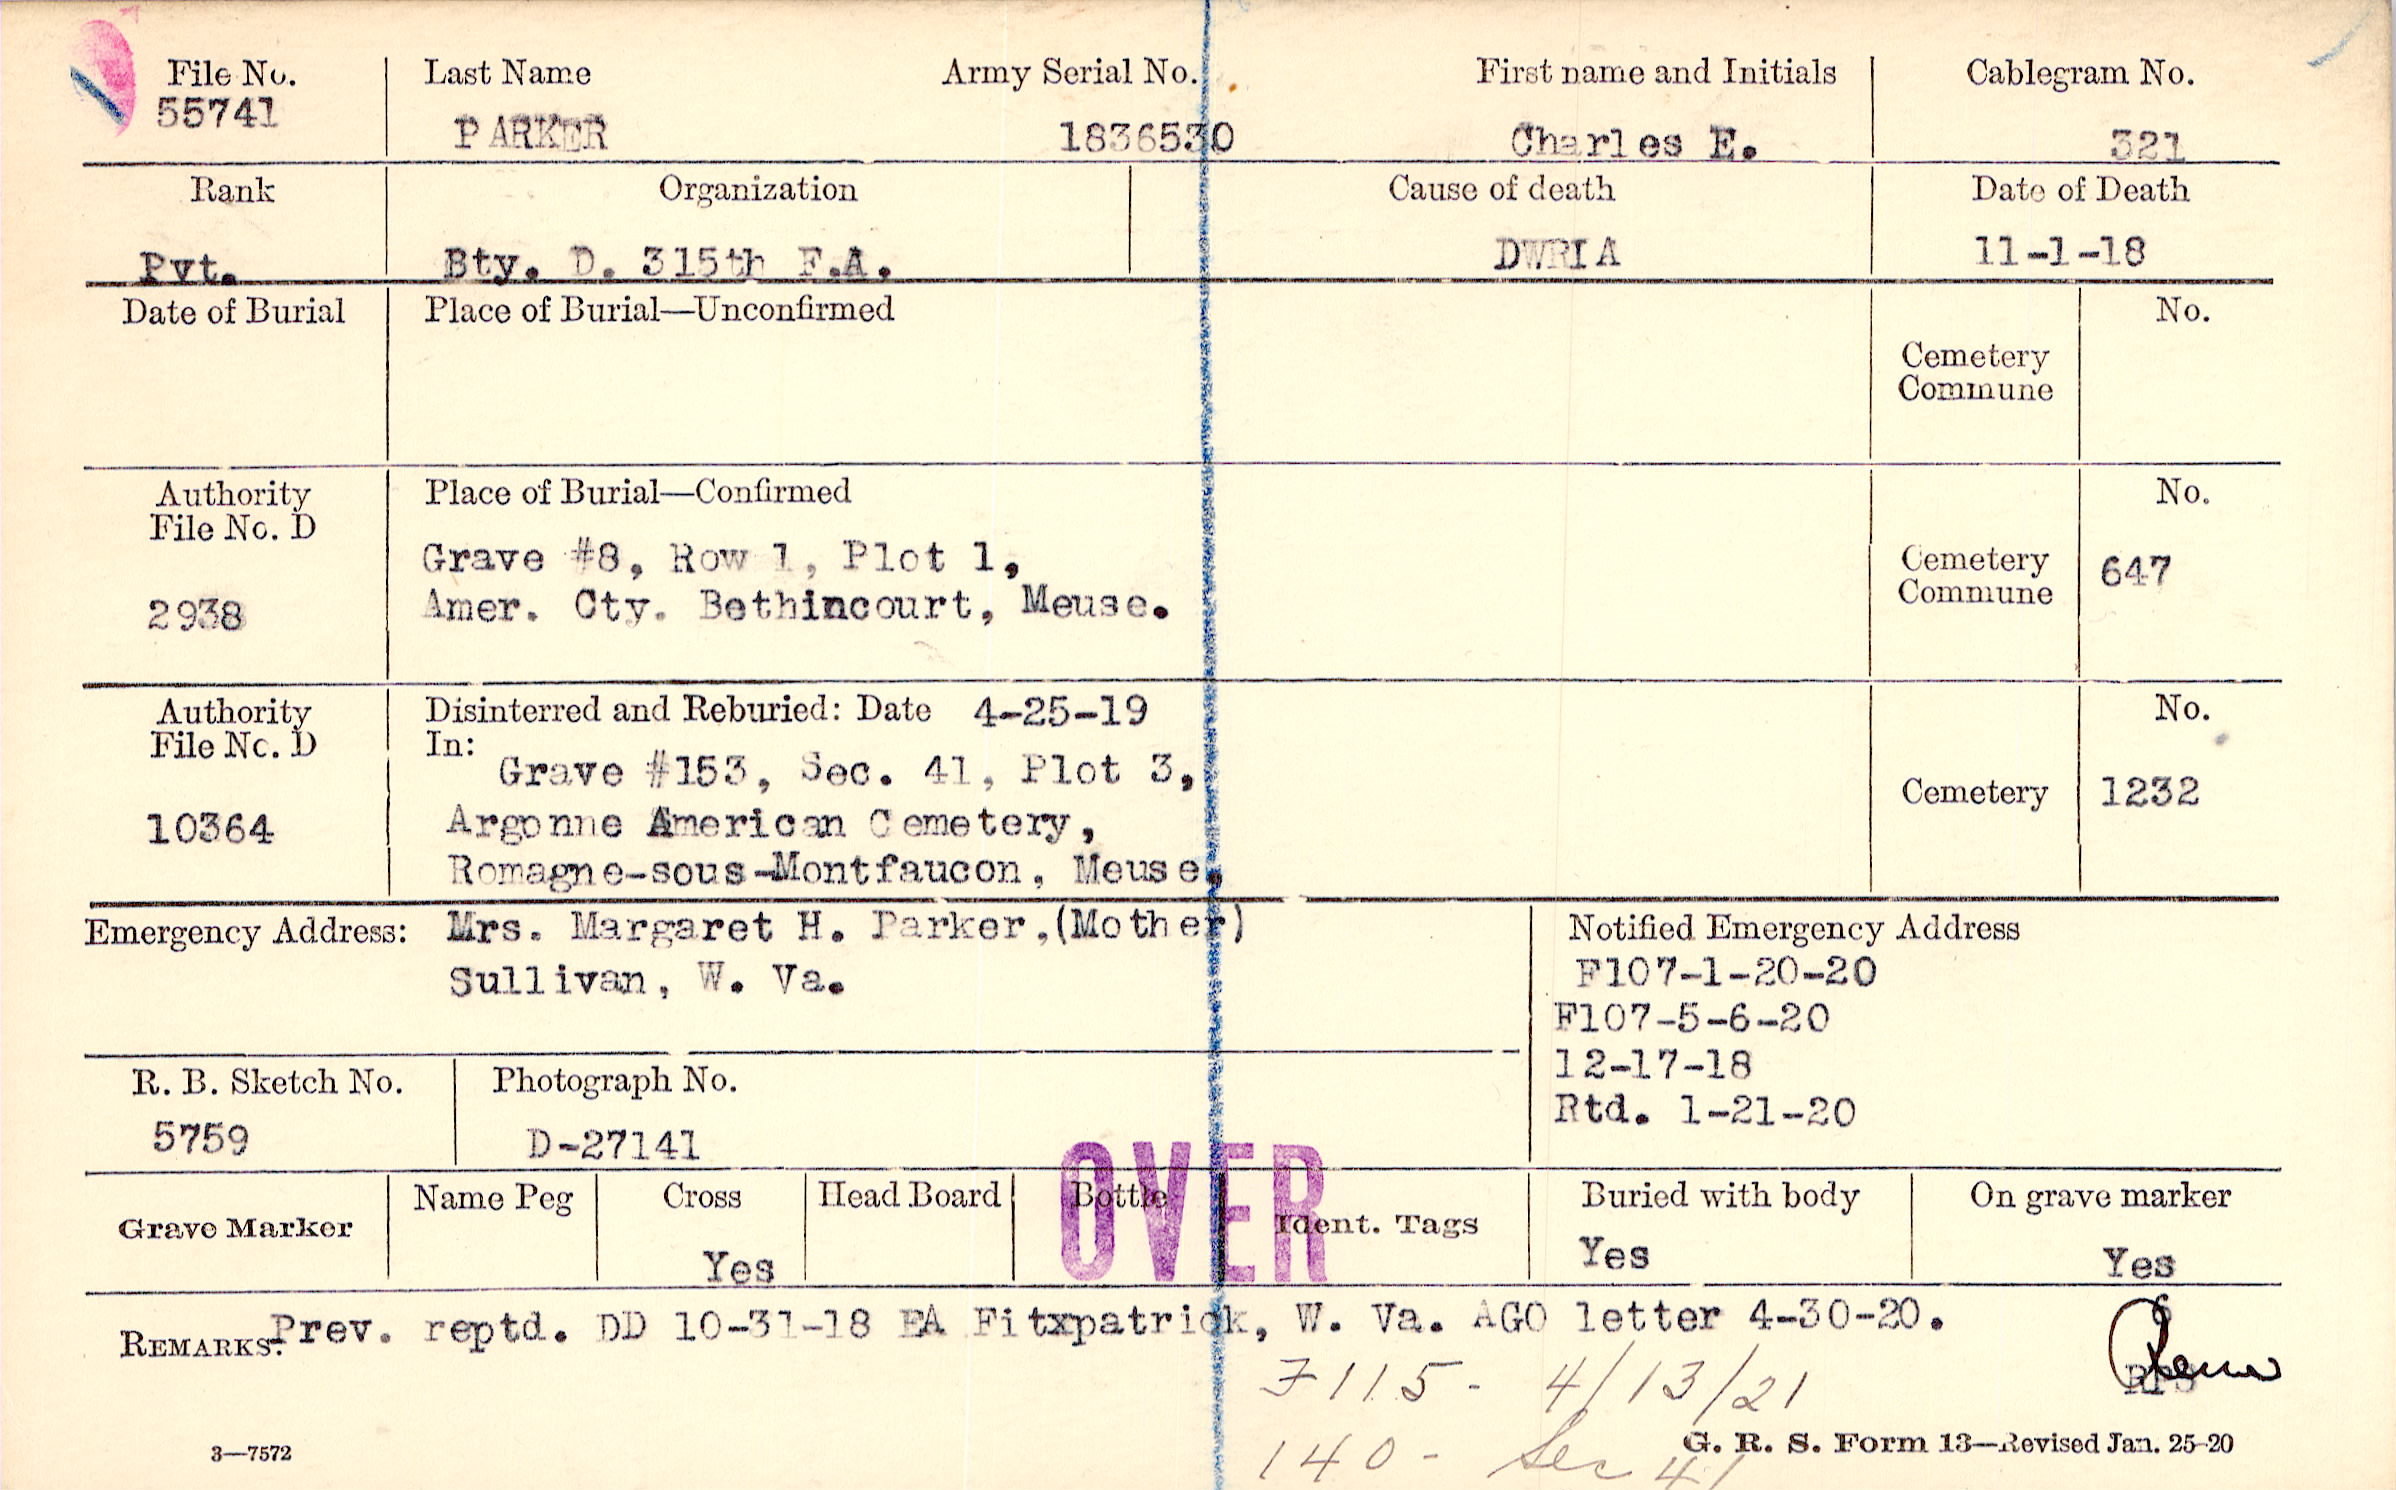 File No. Last Name Army Serial No. First name and Initials Cablegram No.
55741 PARKER 1836530 Charles E. 321
Rank Organization Cause of death Date of Death
Pvt. Bty. D. 315th F.A. DWRIA 11-1-18
Date of Burial Place of Burial—Unconfirmed No.
Cemetery
Commune
Authority Place of Burial—Confirmed No.
File No. D
Grave #8, Row 1, Plot 1, Cemetery 647
2938 Amer. Cty. Bethincourt, Meuse. Commune
Authority Disinterred and Reburied: Date 4-25-19 No.
File No. D In:
Grave #153, Sec. 41, Plot 3, Cemetery 1232
10364 Argonne American Cemetery,
Romagne-sous-Montfaucon, Meuse,
Emergency Address: Mrs. Margaret H. Parker,(Mother) Notified Emergency Address
Sullivan, W. Va. F107-1-20-20
F107-5-6-20
12-17-18
Rtd. 1-21-20
R. B. Sketch No. Photograph No.
5759 D-27141
OVER
Grave Marker Name Peg Cross Head Board Bottle Ident. Tags Buried with body On grave marker
Yes Yes Yes
REMARKS: Prev. reptd. DD 10-31-18 EA Fitxpatrick, W. Va. AGO letter 4-30-20.
F115- 4/13/21
140 - Sec 41
3—7572 G. R. S. Form 13—Revised Jan. 25-20